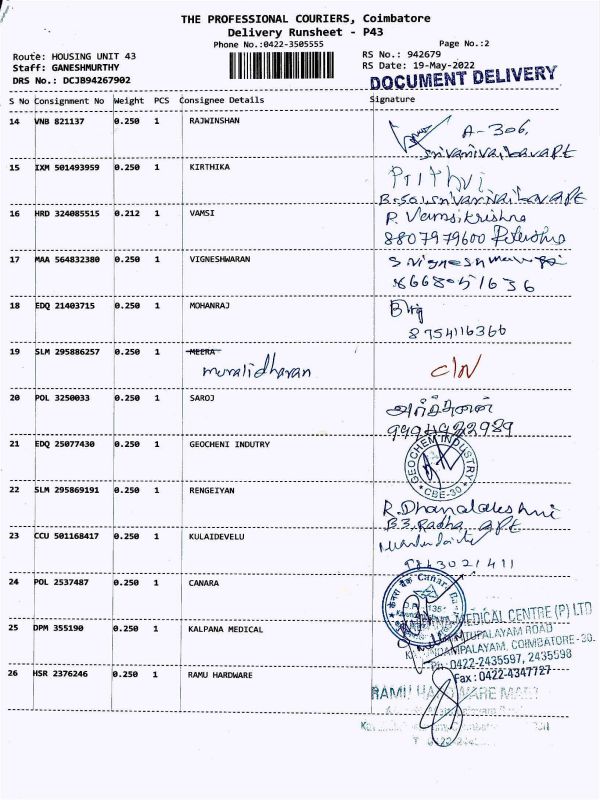 THE PROFESSIONAL COURIERS, Coimbatore
Delivery Runsheet - P43
Phone No.:0422-3505555
Page No.:2
Route: HOUSING UNIT 43
RS No.: 942679
Staff: GANESHMURTHY
RS Date: 19-May-2022
DRS No.: DCJB94267902
DOCUMENT DELIVERY
S No Consignment No Weight PCS Consignee Details Signature
14 VNB 821137 0.250 1 RAJWINSHAN
A-306,
15 IXM 501493959 0.250 1 KIRTHIKA
Prithvi
16 HRD 324085515 0.212 1 VAMSI
P. Vamsikrishna
8807979600
17 MAA 564832380 0.250 1 VIGNESHWARAN
8668051636
18 EDQ 21403715 0.250 1 MOHANRAJ
8754116366
19 SLM 295886257 0.250 1 MEERA
muralidharan
C/N
20 POL 3250033 0.250 1 SAROJ
21 EDQ 25077430 0.250 1 GEOCHENI INDUTRY
GEOCHEM INDUSTRY
CBE-30
22 SLM 295869191 0.250 1 RENGEIYAN
R. Dhanalakshmi
B3, Radha apt
23 CCU 501168417 0.250 1 KULAIDEVELU
24 POL 2537487 0.250 1 CANARA
Canara
25 DPM 355190 0.250 1 KALPANA MEDICAL
MEDICAL CENTRE (P) LTD
ROAD
COIMBATORE-30.
Ph: 0422-2435597, 2435598
Fax: 0422-4347727
26 HSR 2376246 0.250 1 RAMU HARDWARE
RAMU HARDWARE MART